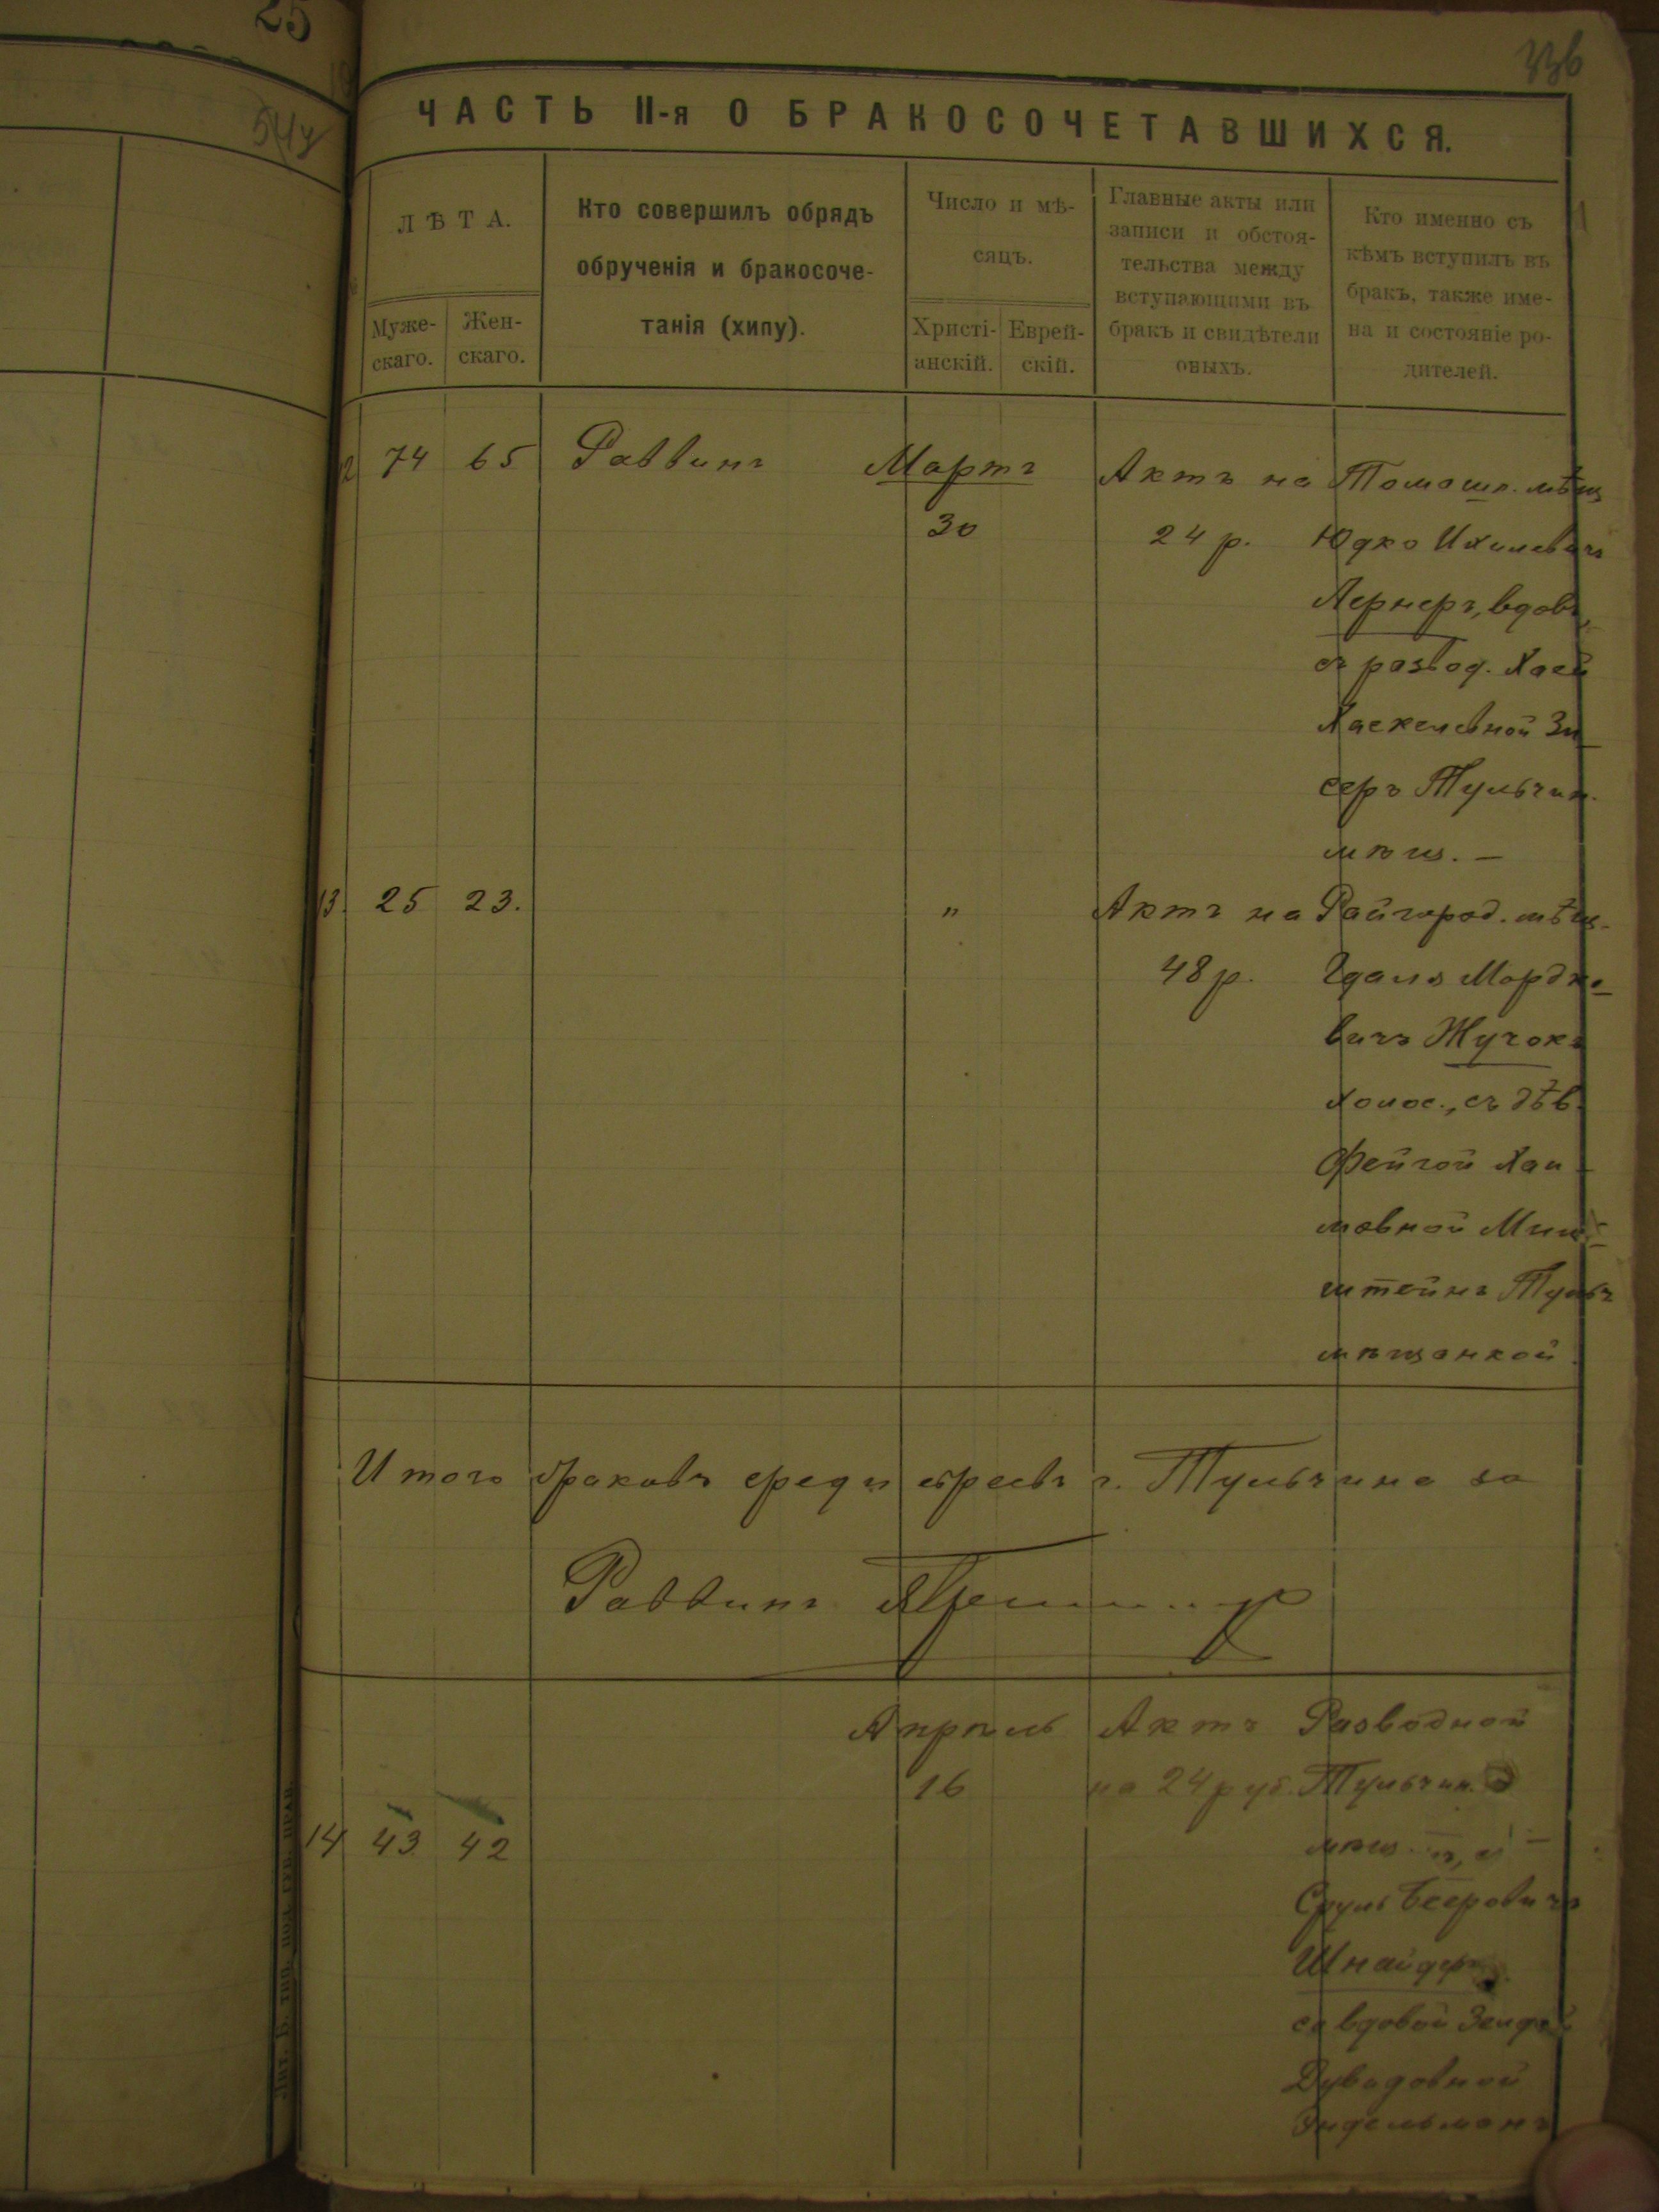 25
544
336
ЧАСТЬ II-я О БРАКОСОЧЕТАВШИХСЯ.
ЛѢТА.
Муже-
скаго.
Жен-
скаго.
Кто совершилъ обрядъ
обрученія и бракосоче-
танія (хипу).
Число и мѣ-
сяцъ.
Христі-
анскій.
Еврей-
скій.
Главные акты или
записи и обстоя-
тельства между
вступающими въ
бракъ и свидѣтели
оныхъ.
Кто именно съ
кѣмъ вступилъ въ
бракъ, также име-
на и состояніе ро-
дителей.
12 74 65 Раввинъ Мартъ
30
Актъ на
24 р.
Томашп. мѣщ
Юдко Ихилевичъ
Лернеръ, вдов.,
съ развод. Хаей
Хаскелевной Зи-
серъ Тульчин.
мѣщ. —
13. 25 23. "
Актъ на
48 р.
Райгород. мѣщ.
Гдаля Мордко-
вичъ Жучокъ
холос., съ дѣв.
Фейгой Хаи-
мовной
штейнъ Тульч
мѣщанкой.
Итого браковъ среди евреевъ г. Тульчина за
Раввинъ
14 43 42
Апрѣль
16
Актъ
на 24 руб.
Разводной
Тульчин.
мѣщ.
Сруль Беровичъ
Шнайдеръ
со вдовой
Дувидовной